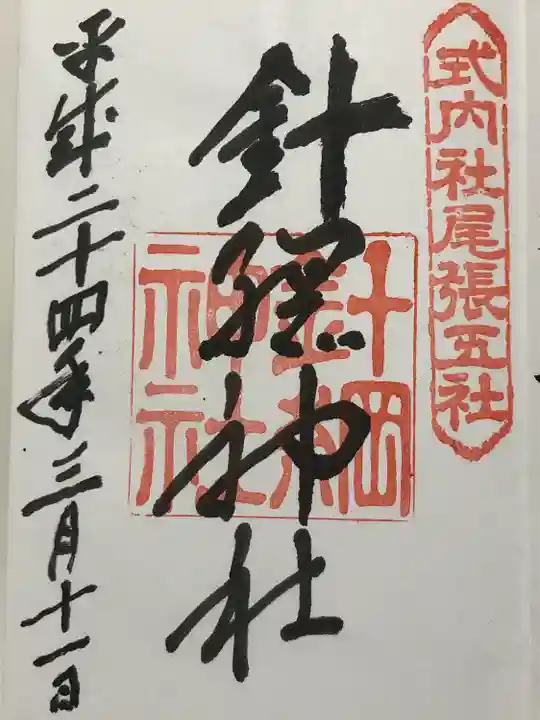 式内社尾張五社
針綱神社
針綱
神社
平成二十四年三月十一日